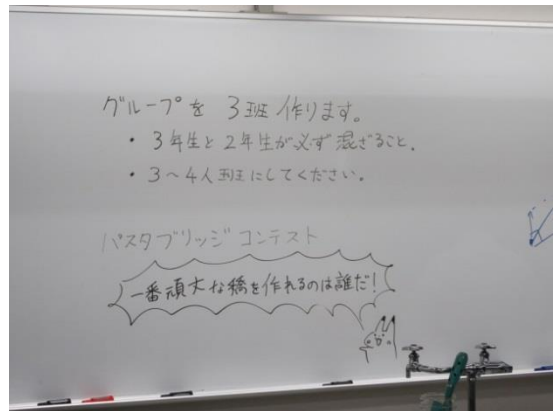 グループを 3班 作ります。
・3年生と2年生が必ず混ざること.
・3～4人班にしてください。
パスタブリッジコンテスト
一番頑丈な橋を作れるのは誰だ!